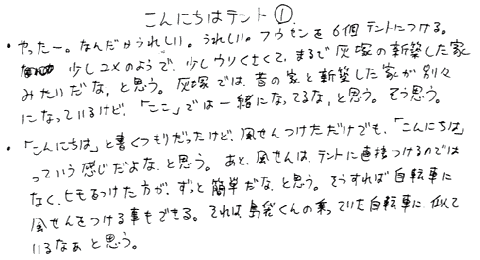 こんにちはテント①
・やったー。なんだかうれしい。うれしい。フウセンを6個テントにつける。
少しユメのようで、少しウソくさくて、まるで灰塚の新築した家
みたいだな、と思う。灰塚では、昔の家と新築した家が別々
になっているけど、「ここ」では一緒になってるな、と思う。そう思う。
・「こんにちは」と書くつもりだったけど、風せんつけただけでも、「こんにちは」
っていう感じだよな、と思う。あと、風せんは、テントに直接つけるのでは
なく、ヒモをつけた方が、ずっと簡単だな、と思う。そうすれば自転車に
風せんをつける事もできる。それは、島袋くんの乗っていた自転車に似て
いるなぁと思う。